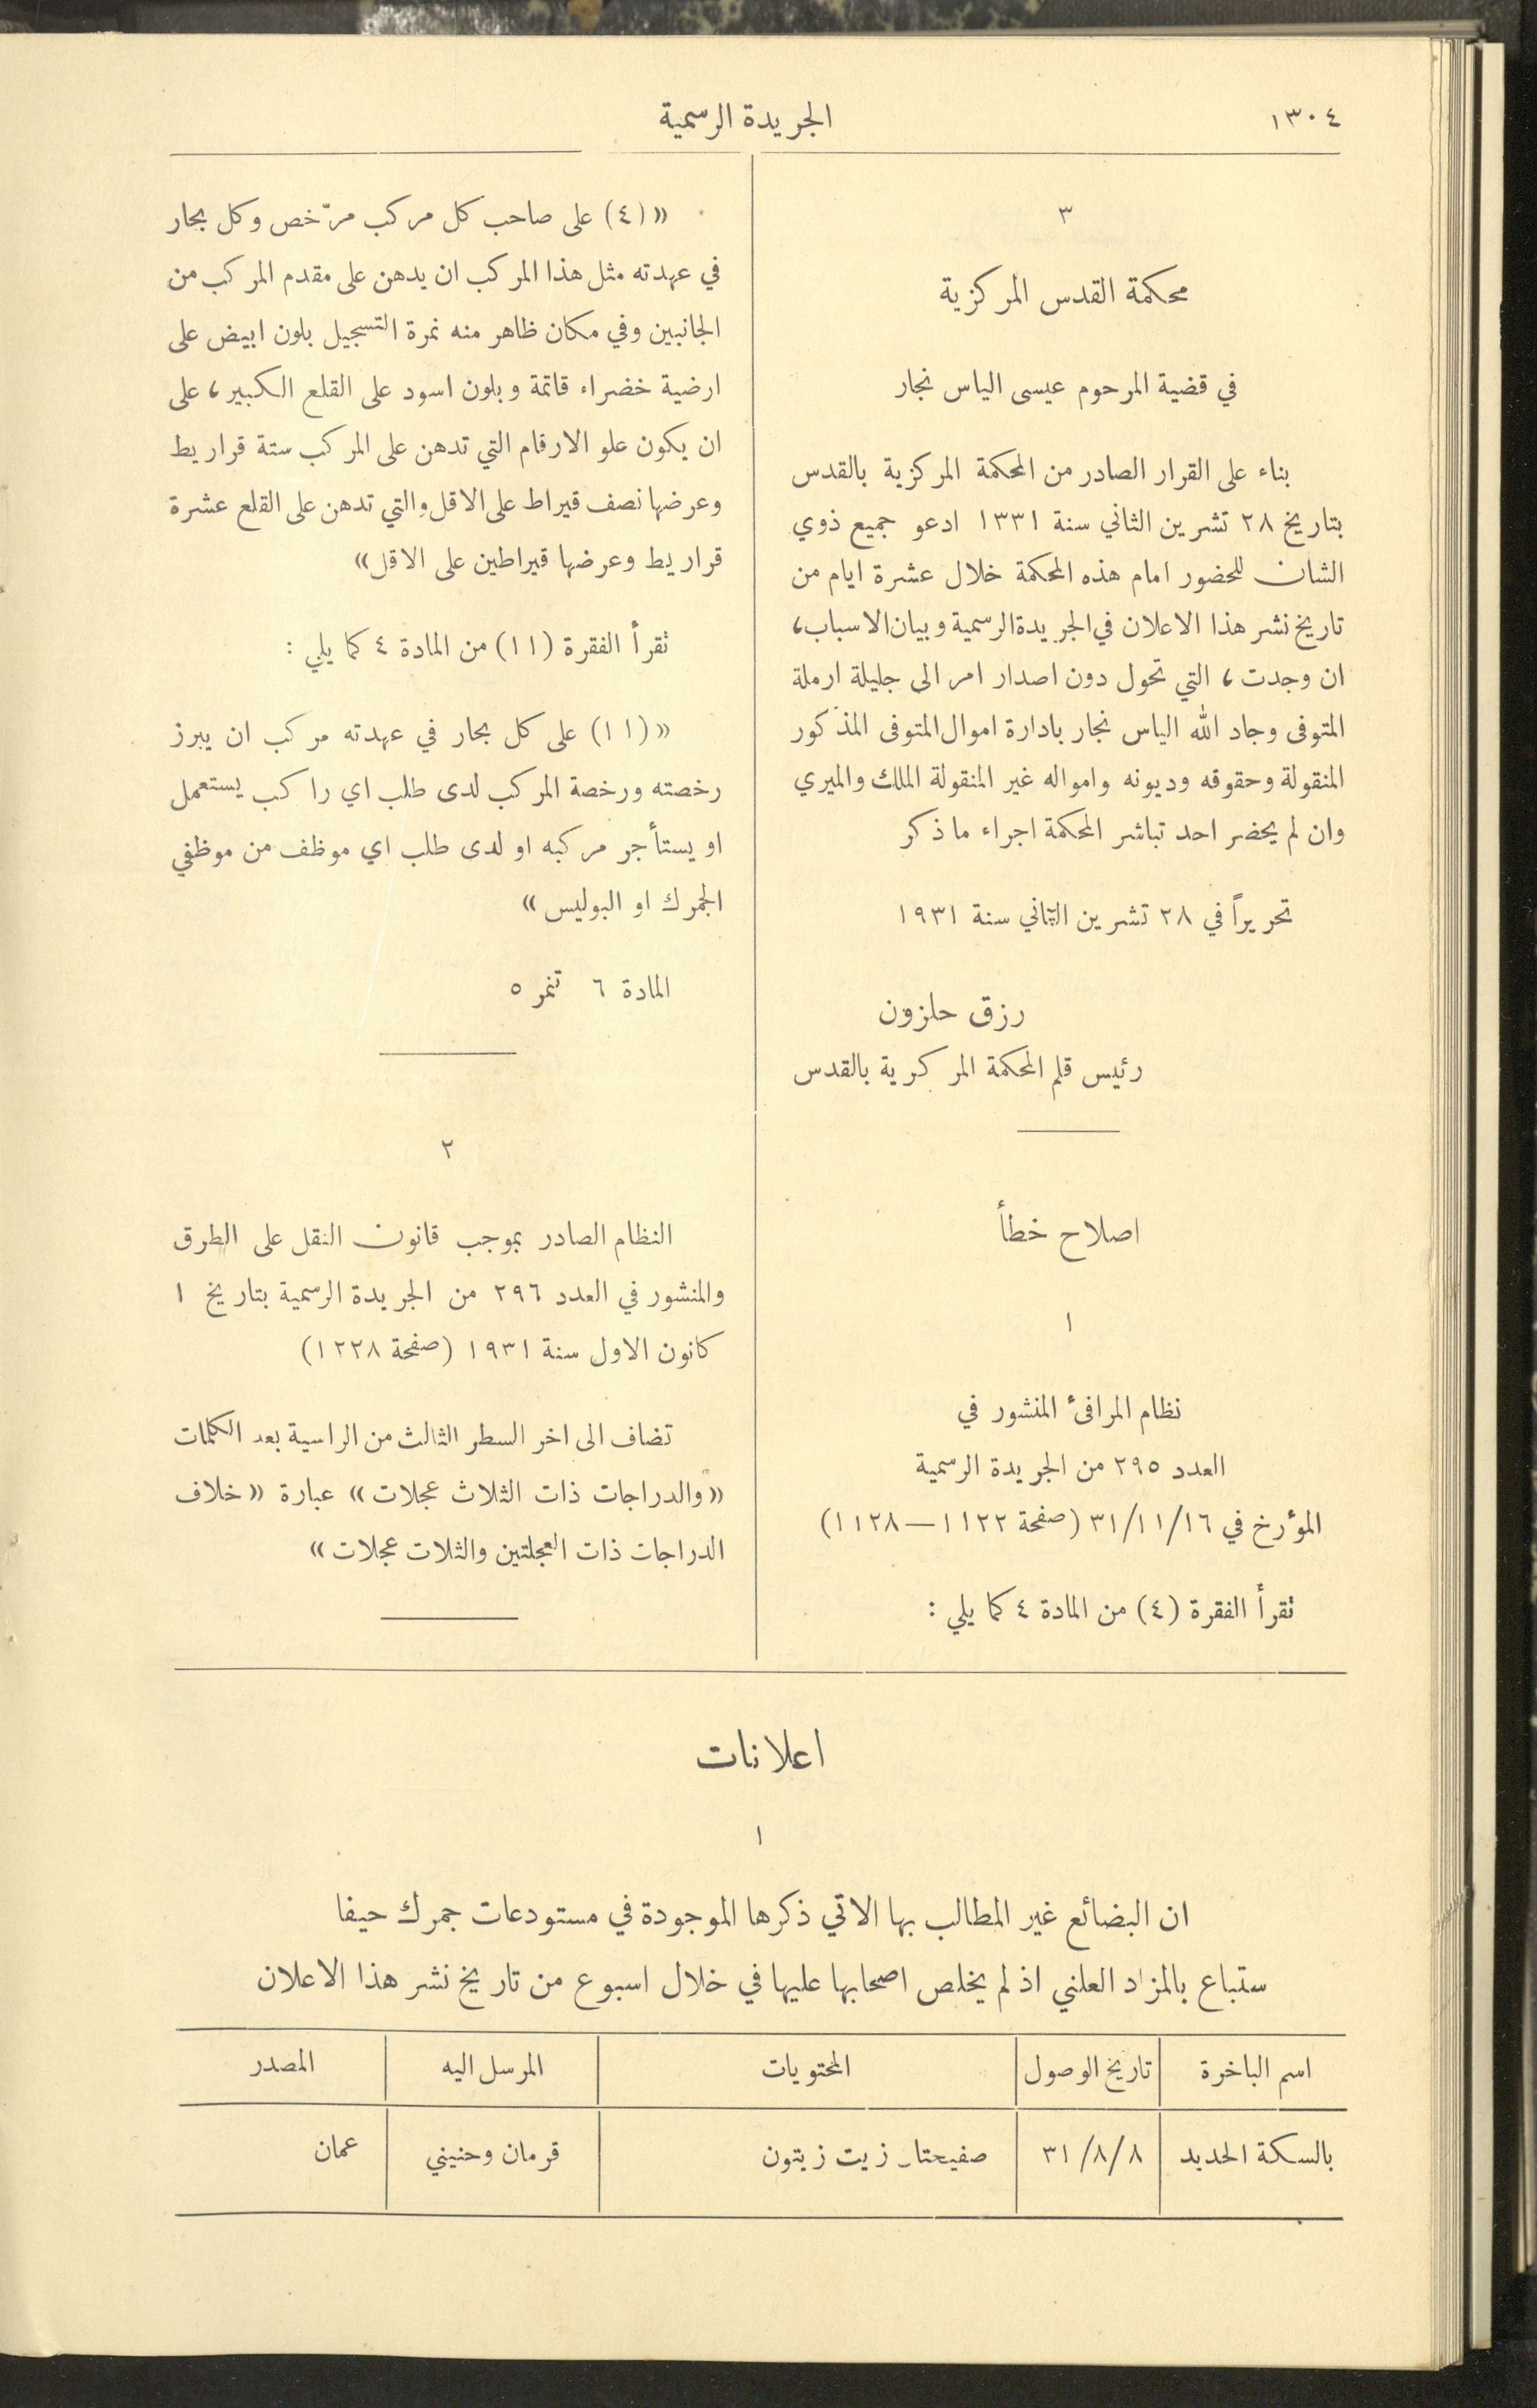 ١٣٠٤
الجريدة الرسمية
٣
محكمة القدس المركزية
في قضية المرحوم عيسى الياس نجار
بناء على القرار الصادر من المحكمة المركزية بالقدس
بتاريخ ٢٨ تشرين الثاني سنة ١٣٣١ ادعو جميع ذوي
الشان للحضور امام هذه المحكمة خلال عشرة ايام من
تاريخ نشر هذا الاعلان في الجريدة الرسمية وبيان الاسباب،
ان وجدت، التي تحول دون اصدار امر الى جليلة ارملة
المتوفى وجاد الله الياس نجار بادارة اموال المتوفى المذكور
المنقولة وحقوقه وديونه وامواله غير المنقولة الملك والميري
وان لم يحضر احد تباشر المحكمة اجراء ما ذكر
تحريراً في ٢٨ تشرين الثاني سنة ١٩٣١
رزق حلزون
رئيس قلم المحكمة المركرية بالقدس
اصلاح خطأ
١
نظام المرافئ المنشور في
العدد ٢٩٥ من الجريدة الرسمية
المؤرخ في ٣١/١١/١٦ (صفحة ١١٢٢—١١٢٨)
تقرأ الفقرة (٤) من المادة ٤ كما يلي :
«(٤) على صاحب كل مركب مرّخص وكل بحار
في عهدته مثل هذا المركب ان يدهن على مقدم المركب من
الجانبين وفي مكان ظاهر منه نمرة التسجيل بلون ابيض على
ارضية خضراء قاتمة وبلون اسود على القلع الكبير، على
ان يكون علو الارقام التي تدهن على المركب ستة قراريط
وعرضها نصف قيراط على الاقل والتي تدهن على القلع عشرة
قراريط وعرضها قيراطين على الاقل»
تقرأ الفقرة (١١) من المادة ٤ كما يلي :
«(١١) على كل بحار في عهدته مركب ان يبرز
رخصته ورخصة المركب لدى طلب اي راكب يستعمل
او يستأجر مركبه او لدى طلب اي موظف من موظفي
الجمرك او البوليس»
المادة ٦ تنمر ٥
٢
النظام الصادر بموجب قانون النقل على الطرق
والمنشور في العدد ٢٩٦ من الجريدة الرسمية بتاريخ ١
كانون الاول سنة ١٩٣١ (صفحة ١٢٢٨)
تضاف الى اخر السطر الثالث من الراسية بعد الكلمات
«والدراجات ذات الثلاث عجلات» عبارة «خلاف
الدراجات ذات العجلتين والثلات عجلات»
اعلانات
١
ان البضائع غير المطالب بها الاتي ذكرها الموجودة في مستودعات جمرك حيفا
ستباع بالمزاد العلني اذ لم يخلص اصحابها عليها في خلال اسبوع من تاريخ نشر هذا الاعلان
اسم الباخرة تاريخ الوصول المحتويات المرسل اليه المصدر
بالسكة الحديد ٣١/٨/٨ صفيحتان زيت زيتون قرمان وحنيني عمان